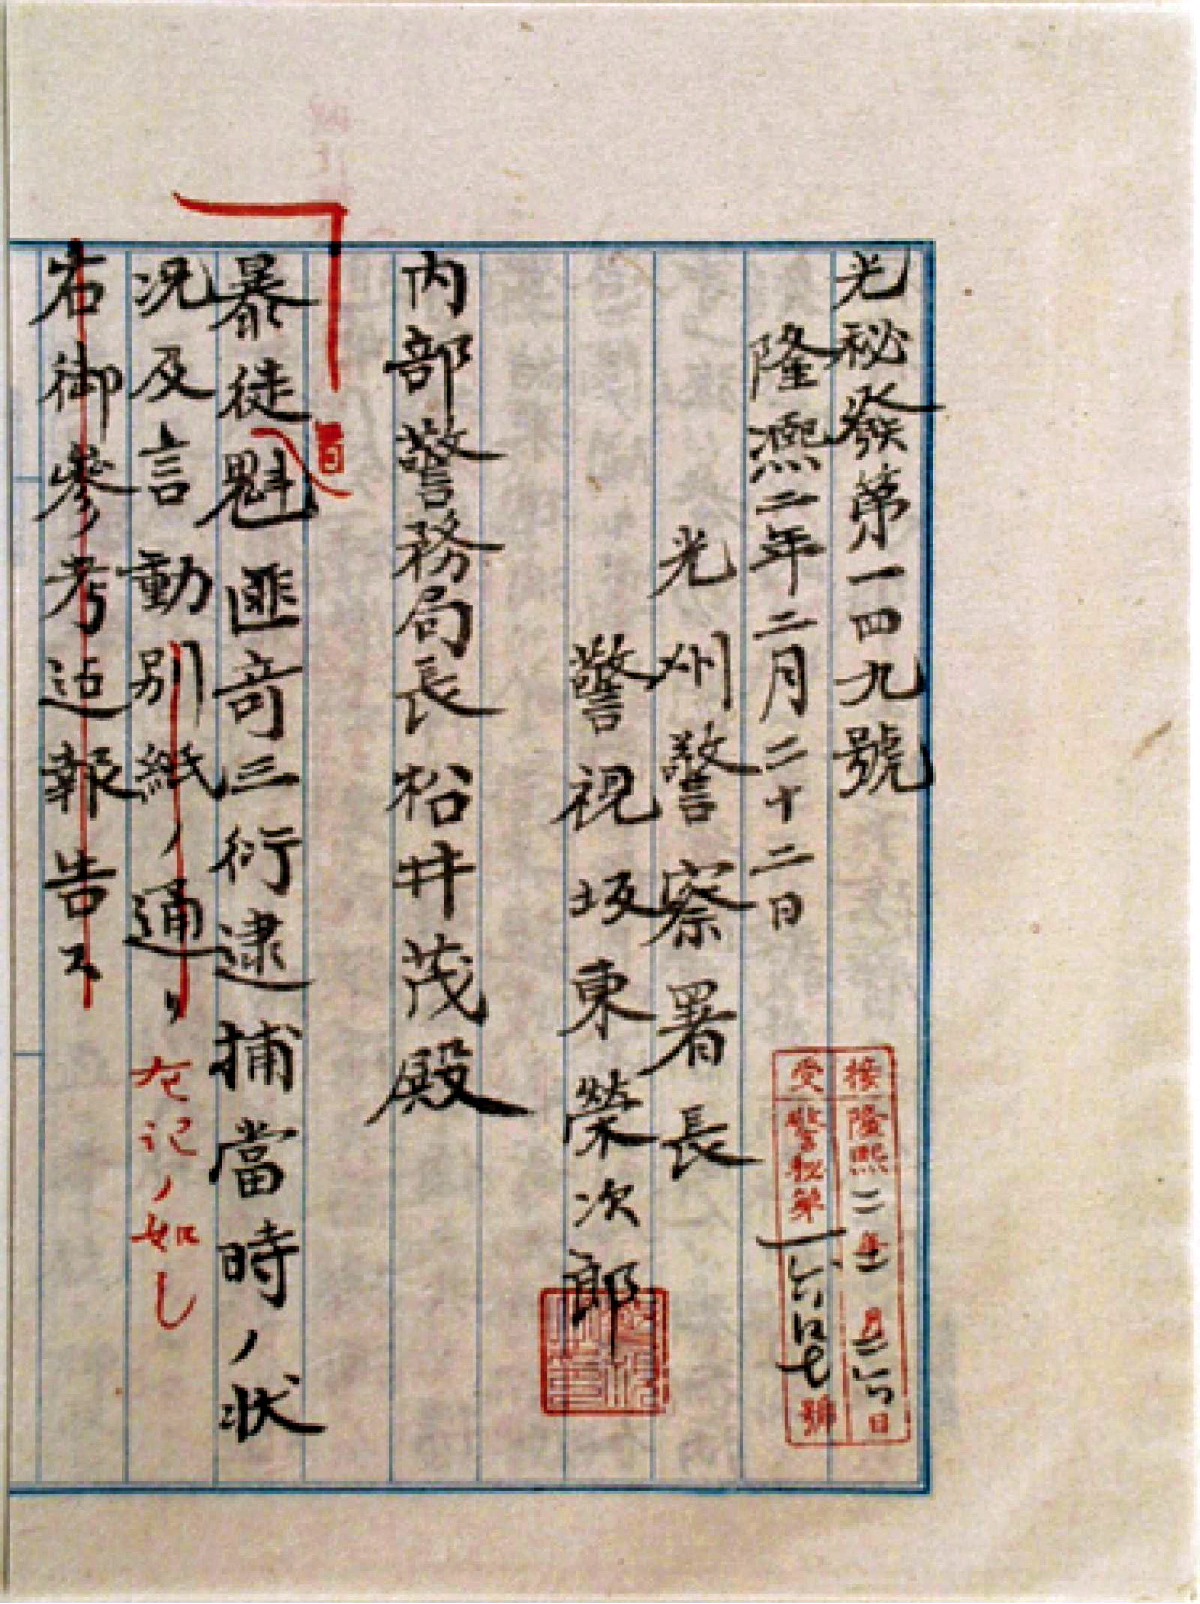 光秘發第一四九號
隆熙二年二月二十二日
光州警察署長
警視坂東榮次郎
內部警務局長松井茂殿
暴徒魁匪奇三衍逮捕當時ノ狀
況及言動別紙ノ通リ
左記ノ如し
右御參考迄報告ス
接 隆熙二年 月 日
受 警秘第 號